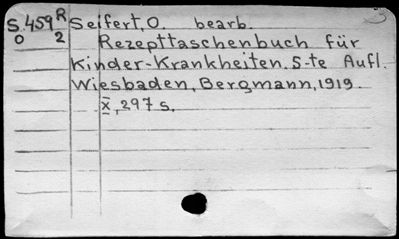 S.459 R Seifert, O. bearb.
O 2 Rezepttaschenbuch für
Kinder-Krankheiten. 5-te Aufl.
Wiesbaden, Bergmann, 1919.
X, 297 s.